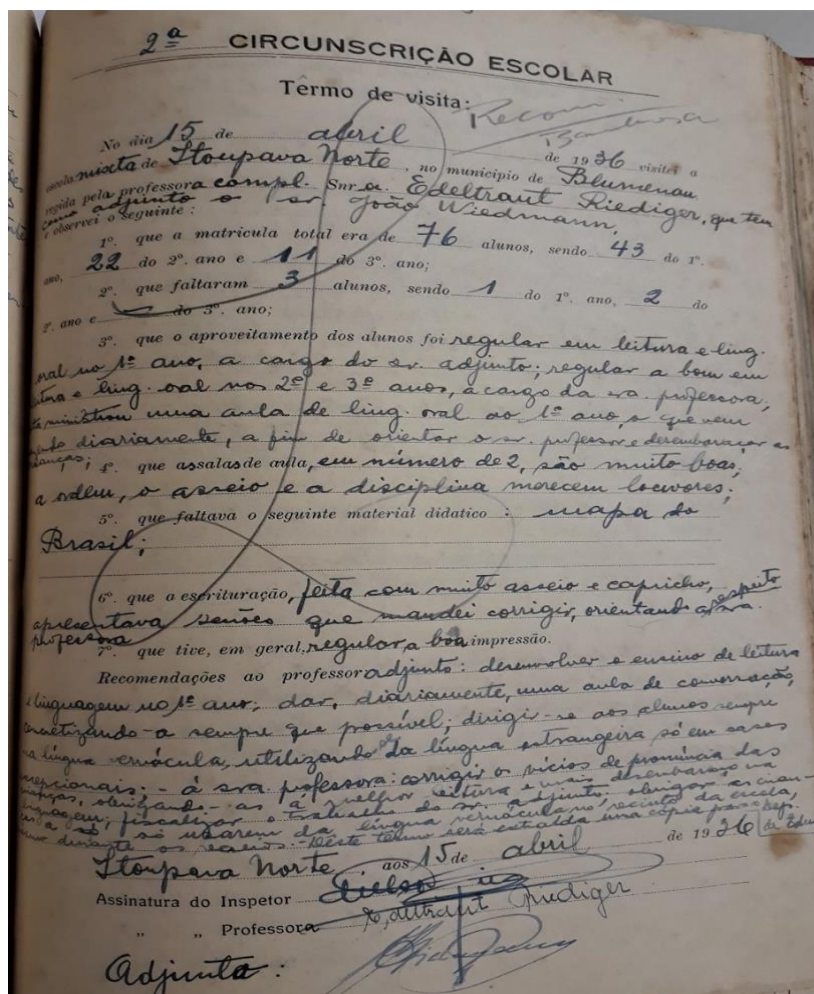 2ª CIRCUNSCRIÇÃO ESCOLAR
Têrmo de visita:
No dia 15 de abril de 1936 visitei a
escola mixta de Itoupava Norte, no municipio de Blumenau
regida pela professora compl. Snr.a. Edeltraut Riediger, que tem
como adjunto o sr. João Wiedmann,
e observei o seguinte :
1º. que a matricula total era de 76 alunos, sendo 43 do 1º.
ano, 22 do 2º. ano e 11 do 3º. ano;
2º. que faltaram 3 alunos, sendo 1 do 1º. ano, 2 do
2º. ano e — do 3º. ano;
3º. que o aproveitamento dos alunos foi regular em leitura e ling.
oral no 1º ano, a cargo do sr. adjunto; regular a bom em
leitura e ling. oral nos 2º e 3º anos, a cargo da sra. professora,
ministrou uma aula de ling. oral ao 1º ano, o que vem
diariamente, a fim de orientar o sr. professor e desembaraçar as
crianças; 4º. que as salas de aula, em número de 2, são muito boas;
a ordem, o asseio e a disciplina merecem louvores;
5º. que faltava o seguinte material didatico : mapa do
Brasil;
6º. que a escrituração, feita com muito asseio e capricho,
apresentava senões que mandei corrigir, orientando a respeito a sra.
professora
7º. que tive, em geral, regular a boa impressão.
Recomendações ao professor adjunto: desenvolver o ensino de leitura
e linguagem no 1º ano; dar, diariamente, uma aula de conversação,
concretizando-a sempre que possível; dirigir-se aos alunos sempre
na língua vernácula, utilizando da língua estrangeira só em casos
excepcionais; - á sra. professora: corrigir os vícios de pronúncia das
crianças, obrigando-as a melhor leitura e mais desembaraço na
linguagem; fiscalizar o trabalho do sr. adjunto; obrigar as crian-
ças a só usarem da língua vernácula no recinto da escola,
durante os recreios. - Deste termo será extraída uma cópia para o Dep.
de Edu
Itoupava Norte, aos 15 de abril de 1936
Assinatura do Inspetor
" " Professora Edeltraut Riediger
Adjunto: